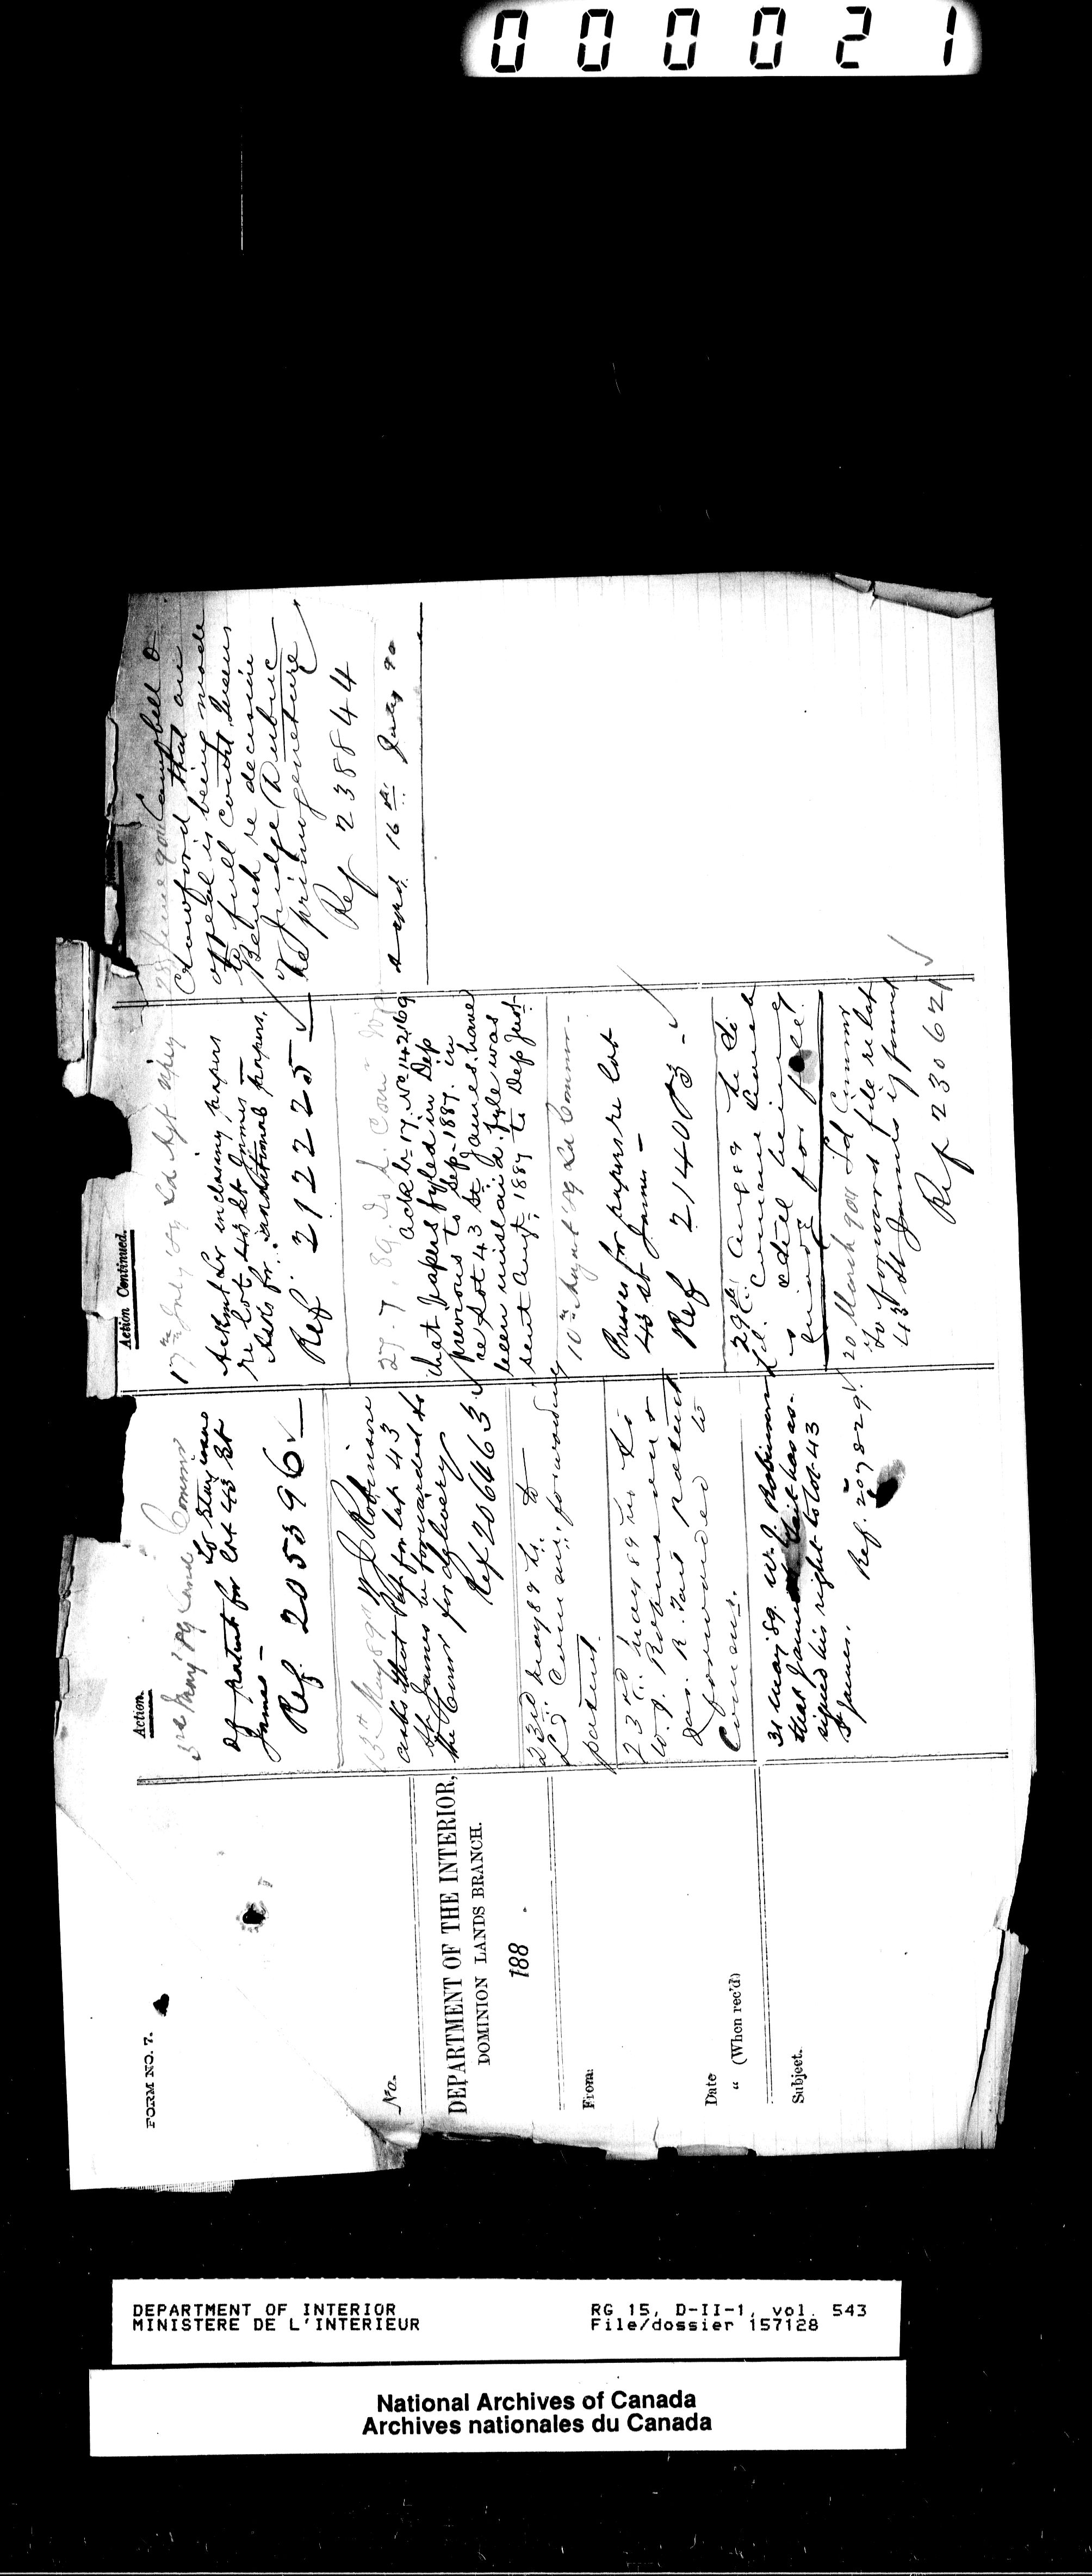 000021
FORM NO. 7.
No.
DEPARTMENT OF THE INTERIOR,
DOMINION LANDS BRANCH.
188 .
From:
Date
" (When rec'd)
Subject.
Action.
3rd May '89 Land Commr
to Stay issue
of patent for lot 43 St
James —
Ref. 205396 ✓
13th May 89 W J Robinson
asks that Pat for lot 43
St James be forwarded to
the Comr for delivery
Ref 206463 ✓
23rd May 89 to
L. Comm forwarding
patent.
23rd May 89 to
W. J. Robinson
Jas. R. Tait patent
forwarded to
Comms.
31 May '89. W. J. Robinson
that James Tait has as-
signed his right to lot 43
St James.
Ref. 207829 ✓
Action Continued.
17th July '89
Ackmt for enclosing papers
re lot 43 St James —
Asks for additional papers.
Ref. 212225 ✓
27.7.89.
that papers fyled in Dep
previous to Sep 1887. in
re Lot 43 St James have
been mislaid. Fyle was
sent Augt, 1887 to Dep Just
10th August '89 Ld Commr.
Presses for papers re lot
43 St James —
Ref 214003 ✓
29th Aug 89 to
Ld. Comms
being
20 March 90 Ld Commr
to forward file re lot
43 St James if found
Ref 230621 ✓
June 90 Campbell &
Crawford, that an
appeal is being made
to full Court Queens
Bench re decision
of Judge Dubuc
re primogeneture ✓
Ref 238844
Ackd. 16th July 90
DEPARTMENT OF INTERIOR
MINISTERE DE L'INTERIEUR
RG 15, D-II-1, vol. 543
File/dossier 157128
National Archives of Canada
Archives nationales du Canada